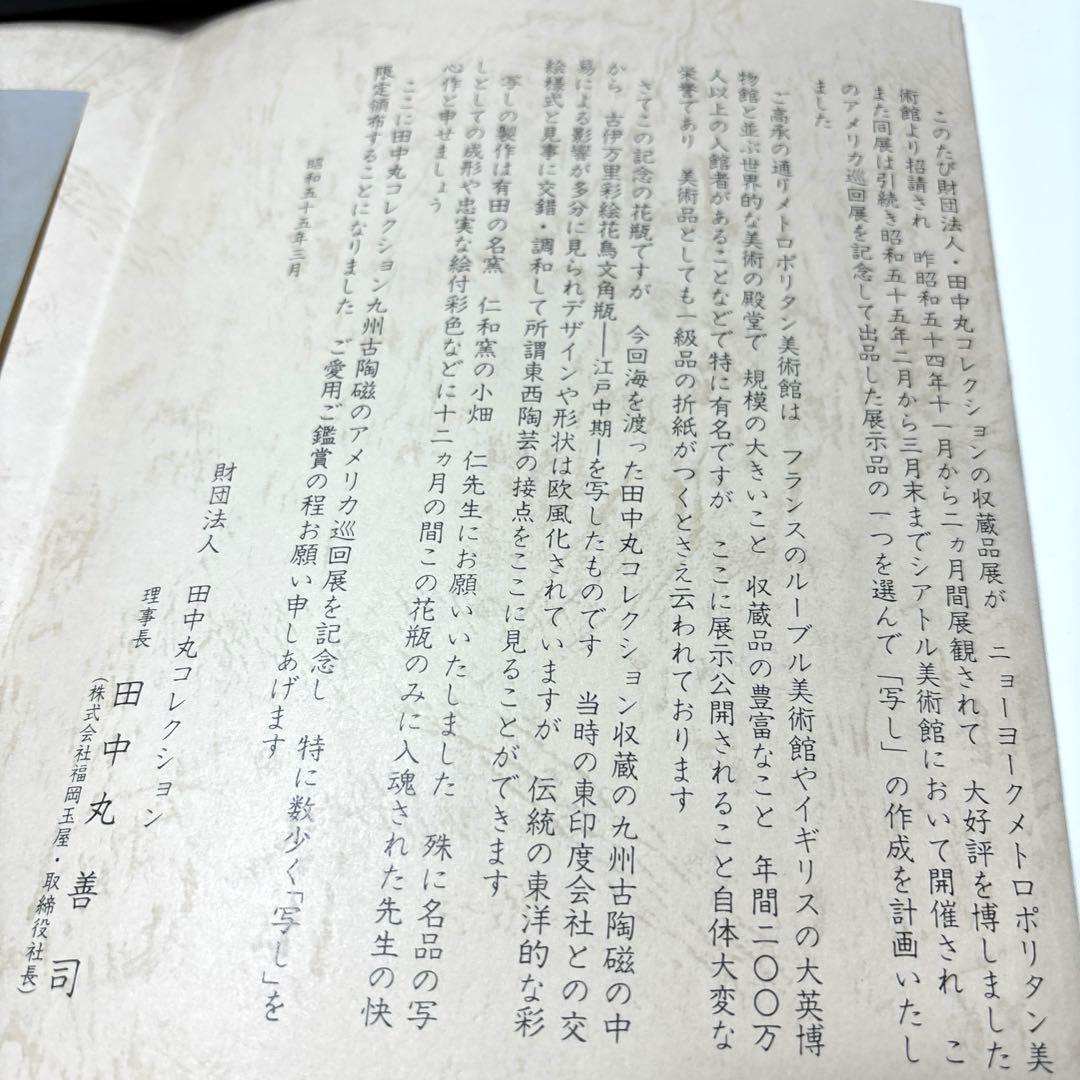 このたび財団法人・田中丸コレクションの収蔵品展が　ニューヨークメトロポリタン美
術館より招請され　昨昭和五十四年十一月から二ヵ月間展観されて　大好評を博しました
また同展は引続き昭和五十五年二月から三月末までシアトル美術館において開催され　こ
のアメリカ巡回展を記念して出品した展示品の一つを選んで「写し」の作成を計画いたし
ました
ご高承の通りメトロポリタン美術館は　フランスのルーブル美術館やイギリスの大英博
物館と並ぶ世界的な美術の殿堂で　規模の大きいこと　収蔵品の豊富なこと　年間二〇〇万
人以上の入館者があることなどで特に有名ですが　ここに展示公開されること自体大変な
栄誉であり　美術品としても一級品の折紙がつくとさえ云われております
さてこの記念の花瓶ですが　今回海を渡った田中丸コレクション収蔵の九州古陶磁の中
から　古伊万里彩絵花鳥文角瓶――江戸中期―を写したものです　当時の東印度会社との交
易による影響が多分に見られデザインや形状は欧風化されていますが　伝統の東洋的な彩
絵様式と見事に交錯・調和して所謂東西陶芸の接点をここに見ることができます
写しの製作は有田の名窯　仁和窯の小畑　仁先生にお願いいたしました　殊に名品の写
しとしての成形や忠実な絵付彩色などに十二ヵ月の間この花瓶のみに入魂された先生の快
心作と申せましょう
ここに田中丸コレクション九州古陶磁のアメリカ巡回展を記念し　特に数少く「写し」を
限定領布することになりました　ご愛用ご鑑賞の程お願い申しあげます
昭和五十五年三月
財団法人　田中丸コレクション
理事長　田中丸　善司
（株式会社福岡玉屋・取締役社長）